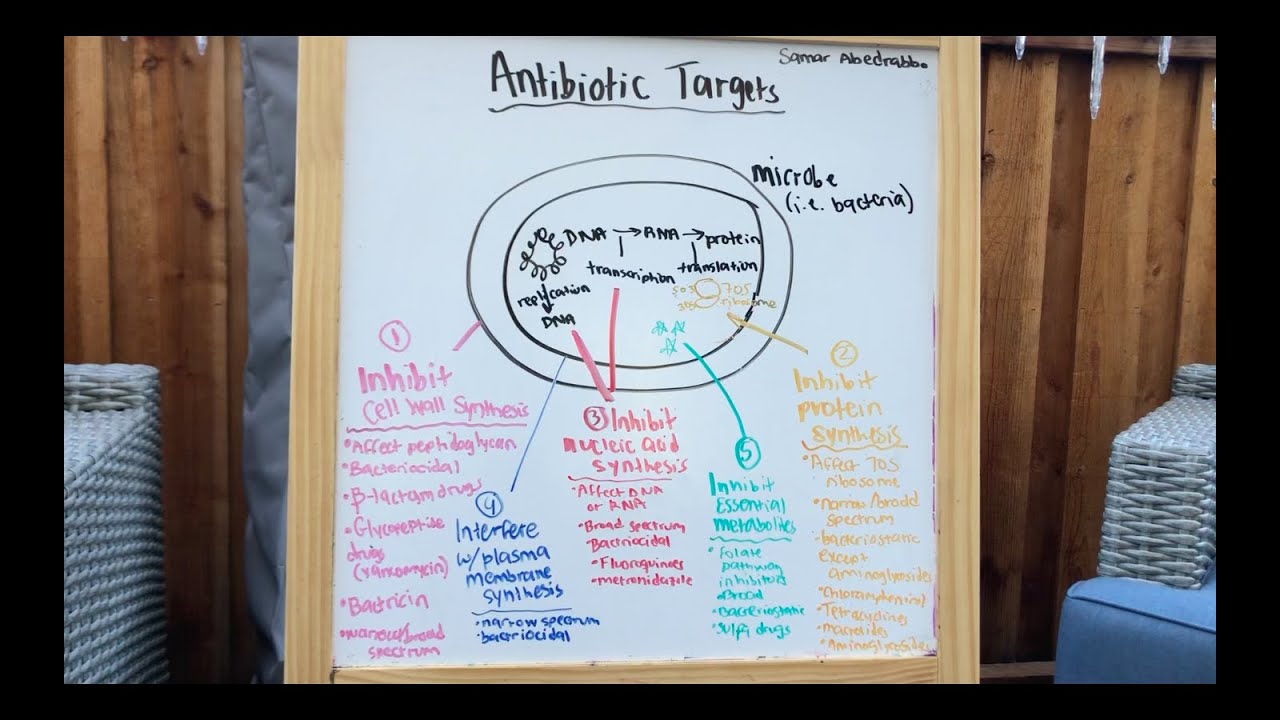 Samar Abedrabbo
Antibiotic Targets
microbe
(i.e. bacteria)
DNA → RNA → protein
transcription
translation
replication
DNA
50S
70S
30S
ribosome
①
Inhibit
Cell Wall Synthesis
• Affect peptidoglycan
• Bacteriocidal
• β-lactam drugs
• Glycopeptide
drugs
(vancomycin)
• Bactricin
• narrow/broad
spectrum
②
Inhibit
protein
synthesis
• Affect 70S
ribosome
• narrow/broad
spectrum
• bacteriostatic
except
aminoglycosides
• Chloramphenicol
• Tetracyclines
• macrolides
• Aminoglycosides
③ Inhibit
nucleic acid
synthesis
• Affect DNA
or RNA
• Broad spectrum
Bactriocidal
• Fluoroquinoes
• metronidazole
④
Interfere
w/plasma
membrane
synthesis
• narrow spectrum
• bactriocidal
⑤
Inhibit
Essential
metabolites
• Folate
pathway
inhibitors
• Broad
• Bacteriostatic
• Sulfa drugs